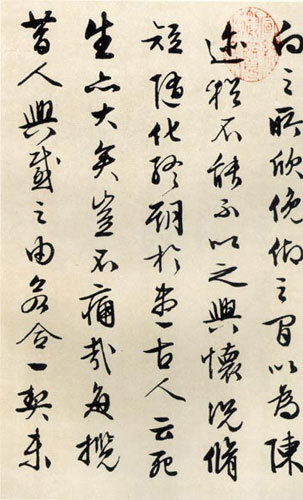 向之所欣俛仰之間以為陳
迹猶不能不以之興懷況脩
短隨化終期於盡古人云死
生亦大矣豈不痛哉每攬
昔人興感之由若合一契未